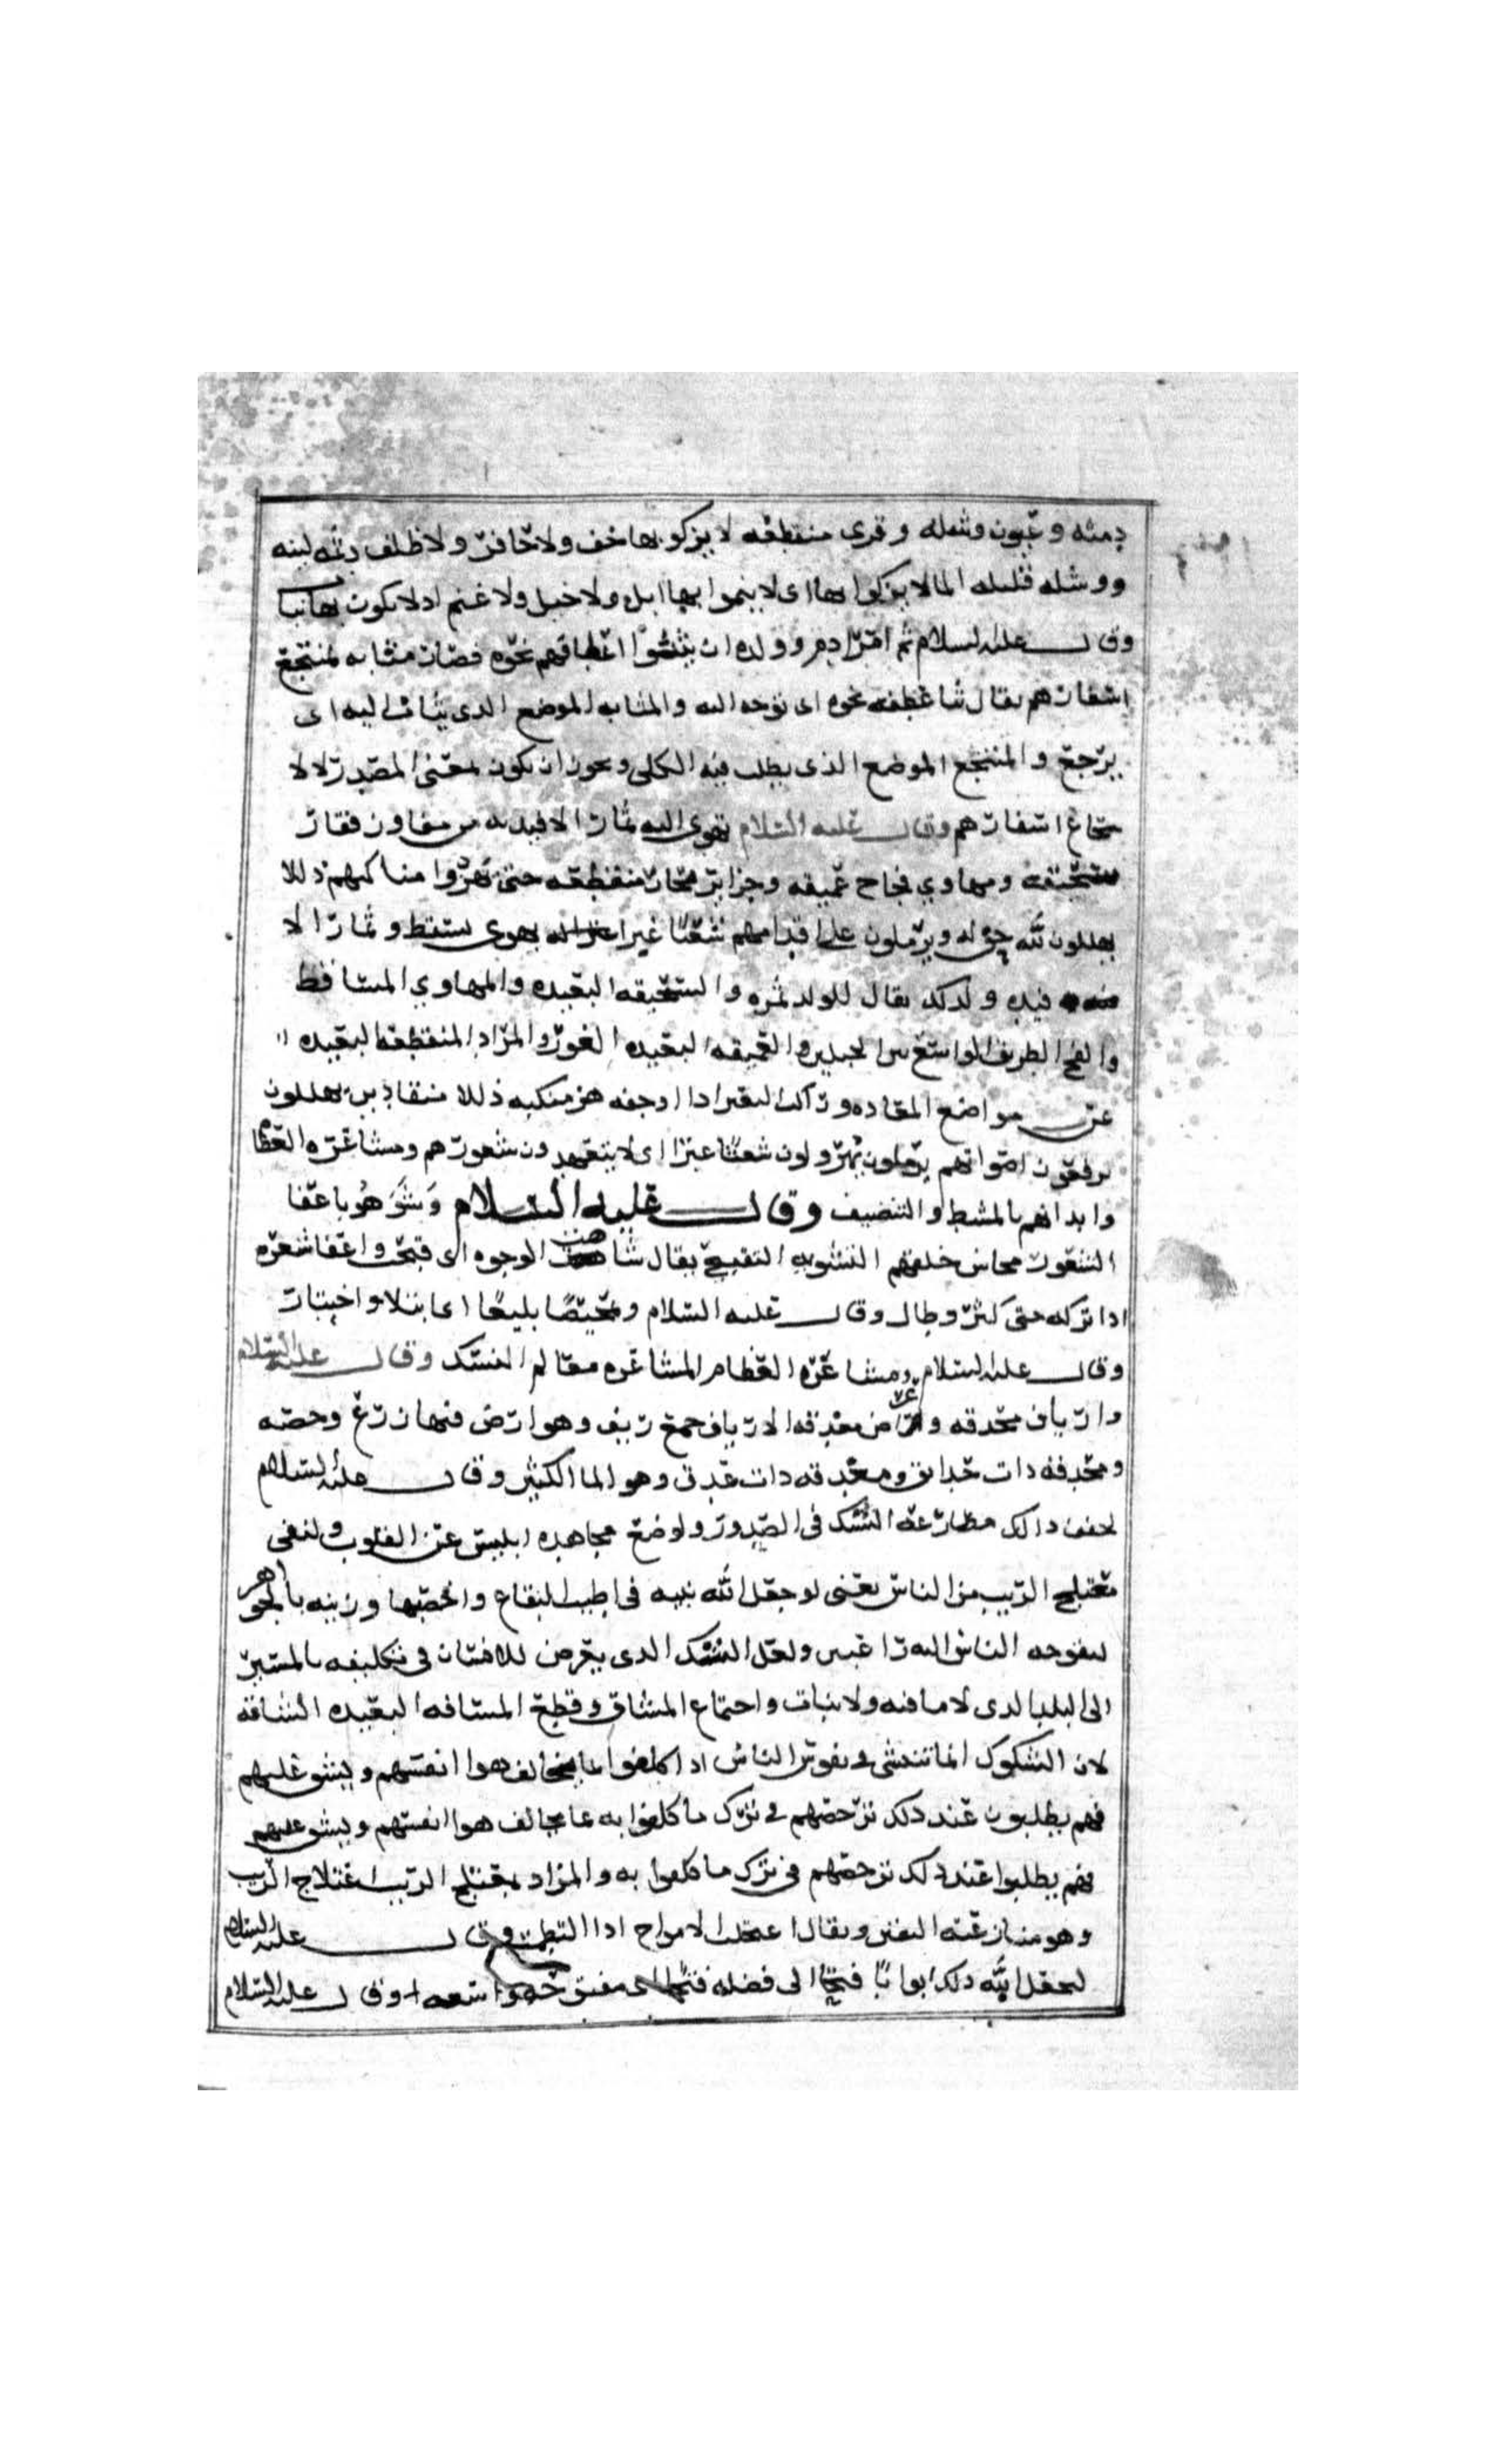 دمثه وعيون وشله وقرى منقطعه لا يزكو بها خف ولا حافر ولا ظلف دمثه لينه
ووشله قليله الما لا يزكوا بها اى لا ينموا بها ابل ولا خيل ولا غنم اد لا يكون بها نبا
وقال عليه السلام ثم امر ادم وولده ان يثنوا اعطافهم نحوه فصار مثابه لمنتجع
اسفارهم يقال ثنا عطفه نحوه اى توجه اليه والمثابه الموضع الدى يثاب اليه اى
يرجع والمنتجع الموضع الذى يطلب فيه الكلى ويجوز ان يكون بمعنى المصدر لا لا
نتجاع اسفارهم وقال عليه السلام تهوى اليه ثمار الافيده من مفاوز قفار
سحيقه ومهاوي فجاج عميقه وجزاير بحار منقطعه حتى يهزوا مناكبهم ذللا
يهللون لله حوله ويرملون على اقدامهم شعثا غبرا له يهوى يسقط وثمار الا
فيده ولدلك يقال للولد ثمره والسحيقه البعيده والمهاوي المساقط
والفج الطريق الواسع بين الجبلين والعميقه البعيده الغور والمراد المنقطعه البعيده
عن مواضع المقاده وراكب البعير ادا اوجفه هز منكبه ذللا منقادين يهللون
يرفعون اصواتهم يرملون يهرولون شعثا غبرا اى لا يتعهدون شعورهم ومشاعره العظا
وابدانهم بالمشط والتنضيف وقال عليه السلام وشوهوا باعفا
الشعور محاسن خلقهم التشويه التقبيح يقال شاهت الوجوه اى قبحت واعفا شعره
ادا تركه حتى كثر وطال وقال عليه السلام وتمحيصا بليغا اى ابتلا واختبار
وقال عليه السلام ومشاعره العظام المشاعره معالم النسك وقال عليه السلام
وارياف محدقه وعراص معدقه الارياف جمع ريف وهو ارض فيها زرع وخصبه
ومحدقه دات حدايق ومعدقه دات غدق وهو الما الكثير وقال عليه السلام
لخفف دالك مظارعه الشك فى الصدور ولوضع مجاهده ابليس عن القلوب ولنفى
معتلج الريب من الناس يعنى لو جعل الله بيته فى اطيب البقاع واخصبها وزينه بالجواهر
لتوجه الناس اليه راغبين ولقل الشك الدى يعرض للانسان فى تكليفه بالمسير
الى البلد الدى لا ما فيه ولا نبات واحتماع المشاق وقطع المسافه البعيده الشاقه
لان الشكوك انما تنشى فى نفوس الناس ادا كلفوا ما يخالف هوا انفسهم ويشق عليهم
فهم يطلبون عند دلك ترخصهم فى ترك ما كلفوا به مما يخالف هوا انفسهم ويشق عليهم
فهم يطلبوا عند دلك ترخصهم فى ترك ما كلفوا به والمراد بمعتلج الريب اعتلاج الريب
وهو منازعته النفس ويقال اعتلجت الامواج ادا التطمت وقال عليه السلام
ليجعل الله دلك ابوابا فتحا الى فضله فتحا اى مفتوحه واسعه وقال عليه السلام